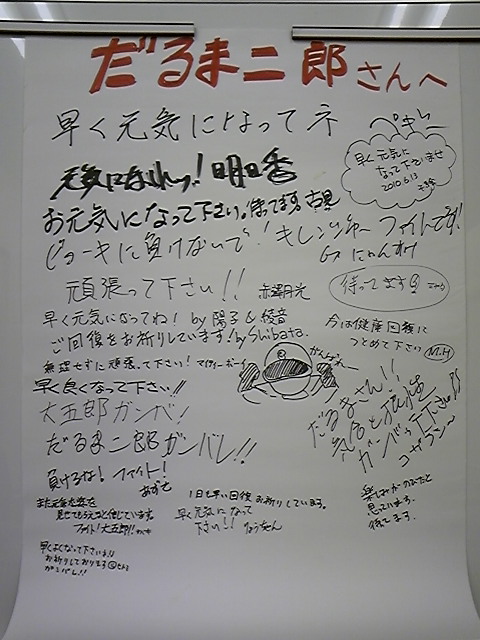 だるま二郎さんへ
早く元気になってネ
早く元気に
なって下さいませ
2010.6.13
元気になれっ!明日香
お元気になって下さい。待ってます。古里
ビョーキに負けないで!キレンジャー ファイトです!!
頑張って下さい!! 赤澤月光
待ってます
早く元気になってね! by 陽子&綾音
ご回復をお祈りしています! by Shibata.
今は健康回復に
つとめて下さい M.H
無理せずに頑張って下さい! マイティーボーイ
がんばれー
早く良くなって下さい!!
大五郎ガンバ!
だるま二郎ガンバレ!!
だるまさーん!!
気合と根性で
ガンバって下さい!!
コザラン〜
負けるな!ファイト!
あずさ
また元気な姿を
見せてもらえると信じています。
ファイト!大五郎!!
1日も早い回復お祈りしています。
早く元気になって
下さい!!
思っています。
待てます。
早くよくなって下さい!!
お祈りしております
ガンバレ!!